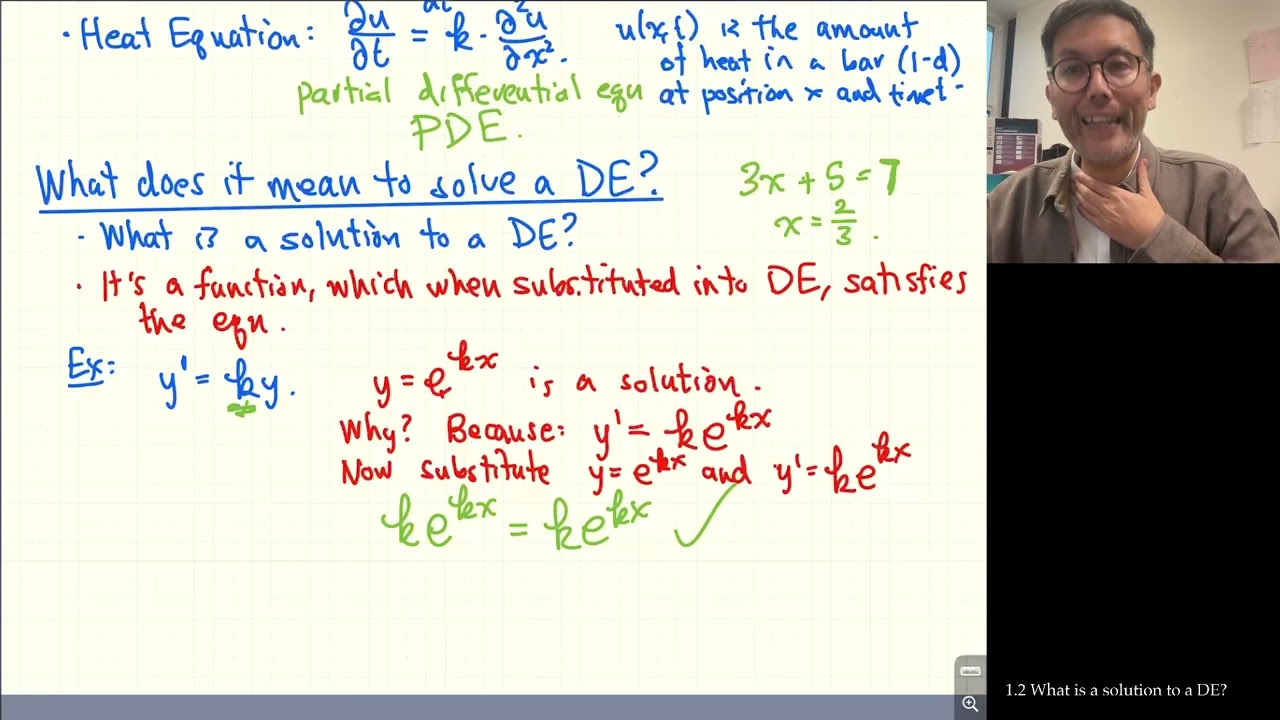 · Heat Equation: ∂u/∂t = k · ∂²u/∂x². u(x,t) is the amount
of heat in a bar (1-d)
partial differential equ at position x and time t.
PDE.
What does it mean to solve a DE?
3x + 5 = 7
· What is a solution to a DE?
x = 2/3.
· It's a function, which when substituted into DE, satisfies
the equ.
Ex: y' = ky. y = e^{kx} is a solution.
Why? Because: y' = ke^{kx}
Now substitute y = e^{kx} and y' = ke^{kx}
ke^{kx} = ke^{kx} ✓
1.2 What is a solution to a DE?